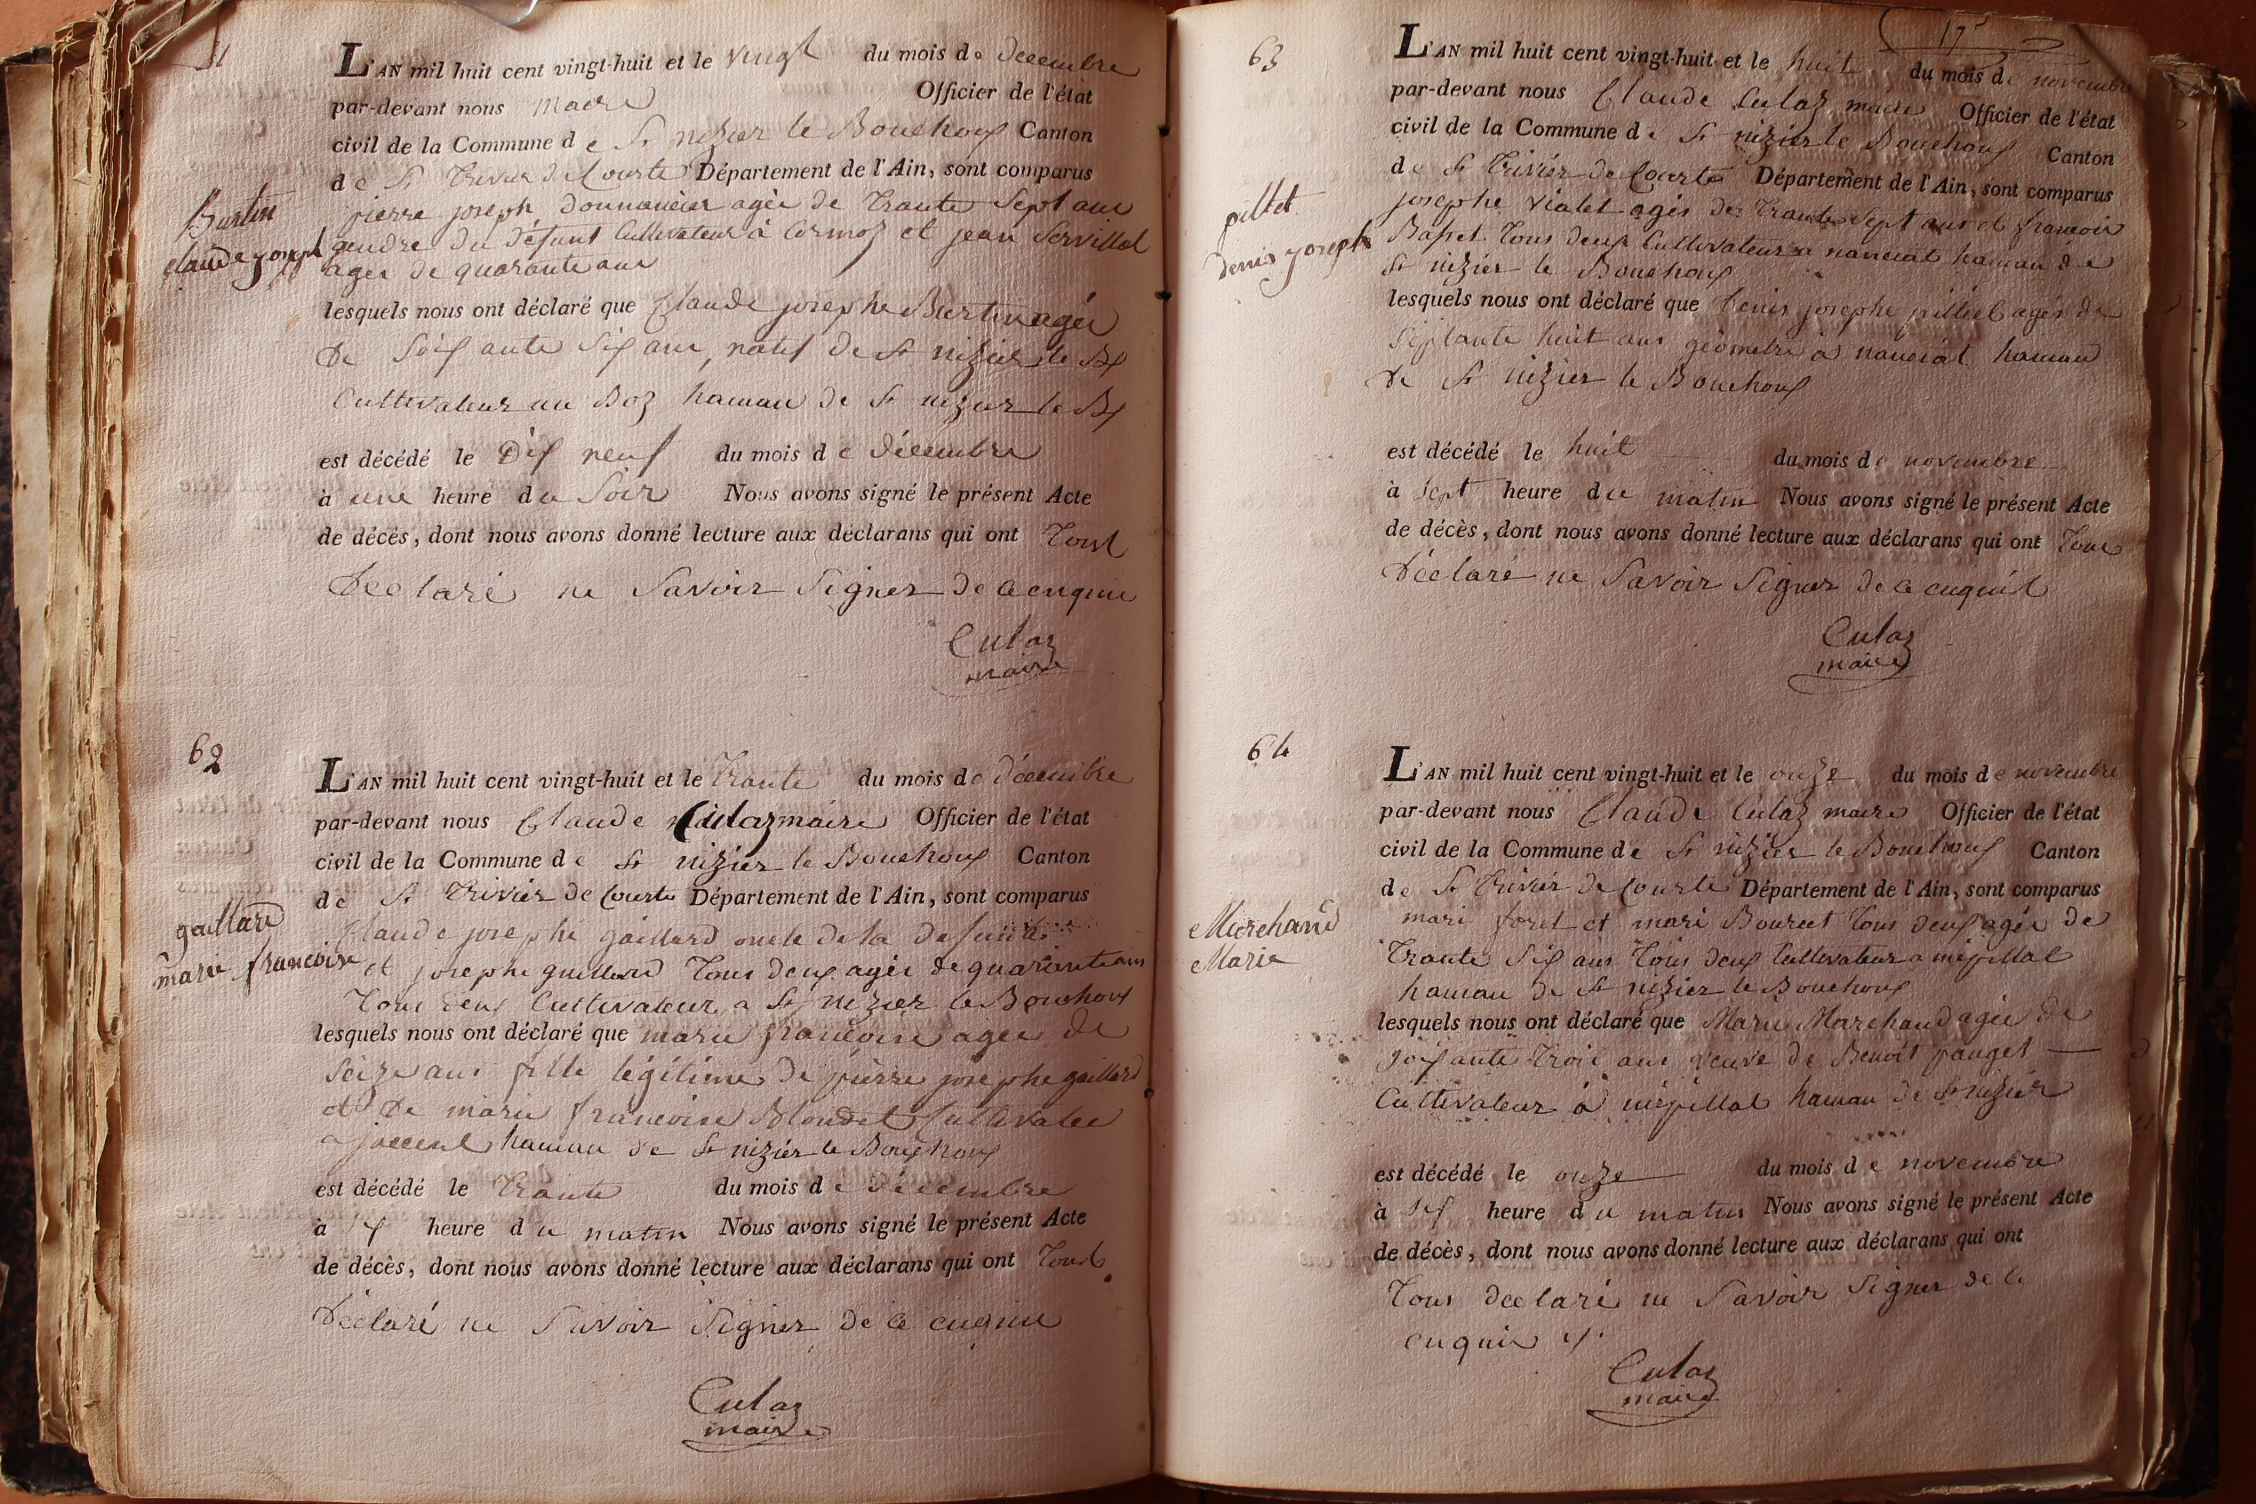 61
L'AN mil huit cent vingt-huit et le vingt du mois de decembre
par-devant nous maire Officier de l'état
civil de la Commune de St nizier le Bouchoux Canton
de St Trivier de Courte Département de l'Ain, sont comparus
pierre joseph donnancier agée de Trante Sept ans
gendre du défunt Cultivateur à Cormoz et jean Servillat
agée de quarante ans
Burtin
claude joseph
lesquels nous ont déclaré que Claude josephe Burtin agée
de Soixante Six ans, natif de St nizier le Bx
Cultivateur au Boz hamau de St nizier le Bx
est décédé le dix neuf du mois de décembre
à une heure du Soir Nous avons signé le présent Acte
de décès, dont nous avons donné lecture aux déclarans qui ont Tout
declaré ne Savoir Signer de ce enquie
Culaz
maire
62
L'AN mil huit cent vingt-huit et le Trante du mois de décembre
par-devant nous Claude Culaz maire Officier de l'état
civil de la Commune de St nizier le Bouchoux Canton
de St Trivier de Courte Département de l'Ain, sont comparus
Claude josephe gaillard oncle de la defunte
et josephe guillard Tous deux agée de quarante ans
Tous deux Cultivateur a St nizier le Bouchoux
gaillard
marie francoise
lesquels nous ont déclaré que marie francoise agée de
Seize ans fille légitime de pierre josephe gaillard
et de marie francoise Blondet Cultivatee
a hamau de St nizier le Bouchoux
est décédé le Trante du mois de décembre
à heure du matin Nous avons signé le présent Acte
de décès, dont nous avons donné lecture aux déclarans qui ont Tous
déclaré ne Savoir Signer de ce enquie
Culaz
maire
175
63
L'AN mil huit cent vingt-huit et le huit du mois de novembre
par-devant nous Claude Culaz maire Officier de l'état
civil de la Commune de St nizier le Bouchoux Canton
de St Trivier de Courte Département de l'Ain, sont comparus
josephe vialet agés de Trante Sept ans et francois
Basset Tous deux Cultivateur a nanciat hamau de
St nizier le Bouchoux
pillet
denis joseph
lesquels nous ont déclaré que denis josephe pilliet agés de
Septante huit ans géometre à nanciat hamau
de St nizier le Bouchoux
est décédé le huit du mois de novembre
à Sept heure du matin Nous avons signé le présent Acte
de décès, dont nous avons donné lecture aux déclarans qui ont Tous
déclaré ne Savoir Signer de ce enquit
Culaz
maire
64
L'AN mil huit cent vingt-huit et le onze du mois de novembre
par-devant nous Claude Culaz maire Officier de l'état
civil de la Commune de St nizier le Bouchoux Canton
de St Trivier de Courte Département de l'Ain, sont comparus
mari foret et mari Bouret Tous deux agée de
Trante Six ans Tous deux Cultivateur a mépillat
hamau de St nizier le Bouchoux
Marchand
Marie
lesquels nous ont déclaré que Marie Marchand agée de
Soixante Trois ans veuve de Benoit panget
Cultivateur à mépillat hamau de St nizier
est décédé le onze du mois de novembre
à Six heure du matin Nous avons signé le présent Acte
de décès, dont nous avons donné lecture aux déclarans qui ont
Tous declaré ne Savoir Signer de ce
enquie
Culaz
maire